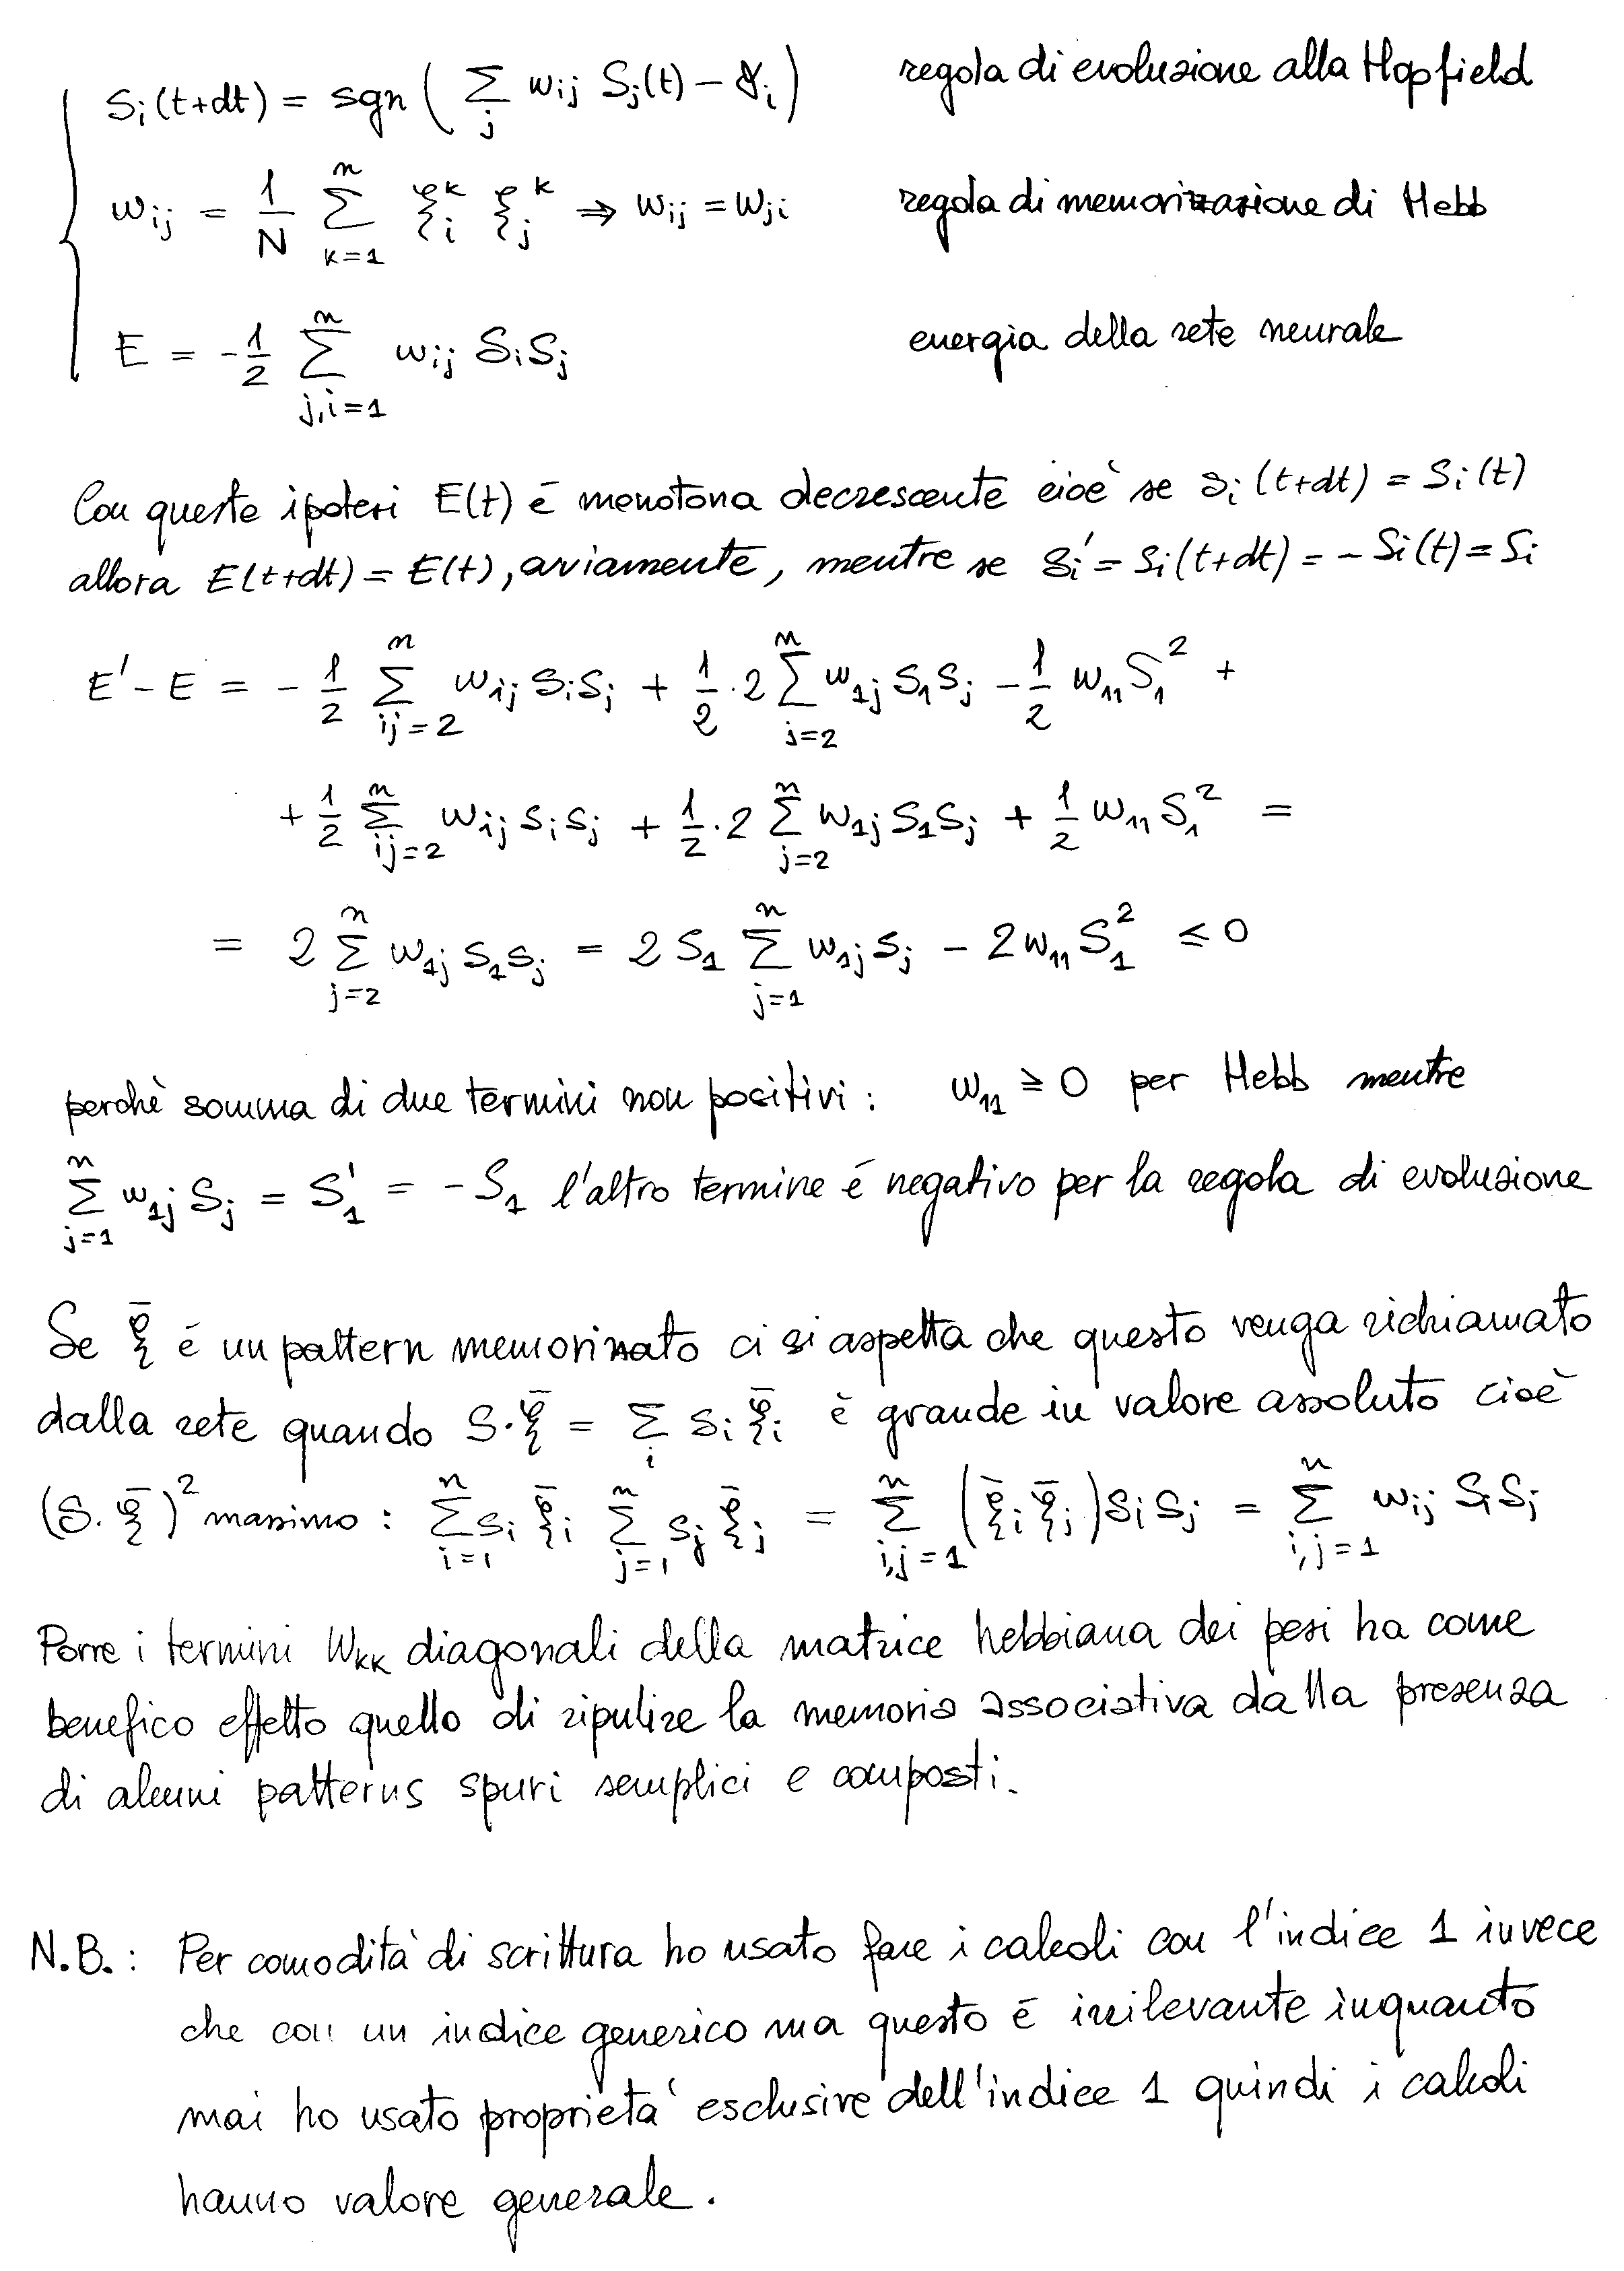 Sᵢ(t+dt) = sgn ( Σ_j wᵢⱼ Sⱼ(t) − ϑᵢ ) regola di evoluzione alla Hopfield
wᵢⱼ = 1/N Σ_{k=1}^{n} ξᵢᵏ ξⱼᵏ ⇒ wᵢⱼ = wⱼᵢ regola di memorizzazione di Hebb
E = -1/2 Σ_{j,i=1}^{n} wᵢⱼ SᵢSⱼ energia della rete neurale
Con queste ipotesi E(t) è monotona decrescente cioè se Sᵢ(t+dt) = Sᵢ(t)
allora E(t+dt) = E(t), ovviamente, mentre se Sᵢ' = Sᵢ(t+dt) = − Sᵢ(t) = Sᵢ
E' − E = − 1/2 Σ_{ij=2}^{n} wᵢⱼ SᵢSⱼ + 1/2 · 2 Σ_{j=2}^{n} w₁ⱼ S₁Sⱼ − 1/2 w₁₁ S₁² +
+ 1/2 Σ_{ij=2}^{n} wᵢⱼ SᵢSⱼ + 1/2 · 2 Σ_{j=2}^{n} w₁ⱼ S₁Sⱼ + 1/2 w₁₁ S₁² =
= 2 Σ_{j=2}^{n} w₁ⱼ S₁Sⱼ = 2 S₁ Σ_{j=1}^{n} w₁ⱼ Sⱼ − 2 w₁₁ S₁² ≤ 0
perchè somma di due termini non positivi : w₁₁ ≥ 0 per Hebb mentre
Σ_{j=1}^{n} w₁ⱼ Sⱼ = S₁' = − S₁ l'altro termine è negativo per la regola di evoluzione
Se ξ̄ è un pattern memorizzato ci si aspetta che questo venga richiamato
dalla rete quando S·ξ̄ = Σ_i Sᵢ ξ̄ᵢ è grande in valore assoluto cioè
(S·ξ̄)² massimo : Σ_{i=1}^{n} Sᵢ ξ̄ᵢ Σ_{j=1}^{n} Sⱼ ξ̄ⱼ = Σ_{i,j=1}^{n} (ξ̄ᵢ ξ̄ⱼ) SᵢSⱼ = Σ_{i,j=1}^{n} wᵢⱼ SᵢSⱼ
Porre i termini Wₖₖ diagonali della matrice hebbiana dei pesi ha come
benefico effetto quello di ripulire la memoria associativa dalla presenza
di alcuni patterns spuri semplici e composti.
N.B. : Per comodità di scrittura ho usato fare i calcoli con l'indice 1 invece
che con un indice generico ma questo è irrilevante inquanto
mai ho usato proprietà esclusive dell'indice 1 quindi i calcoli
hanno valore generale.